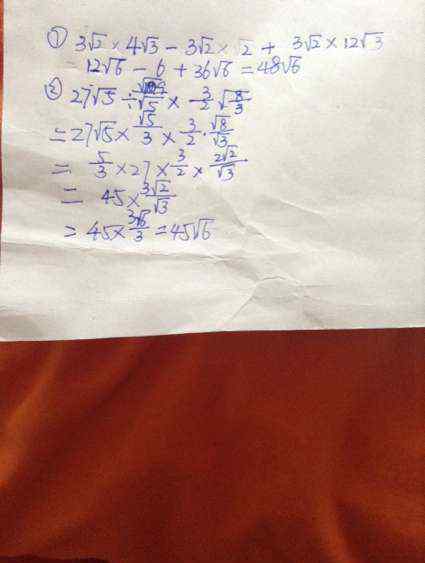 ① 3√2 × 4√3 − 3√2 × √2 + 3√2 × 12√3
12√6 − 6 + 36√6 = 48√6
② 27√5 ÷ /√5 × 3/2 √8/3
= 27√5 × √5/3 × 3/2 · √8/√3
= 5/3 × 27 × 3/2 × 2√2/√3
= 45 × 3√2/√3
= 45 × 3√6/3 = 45√6